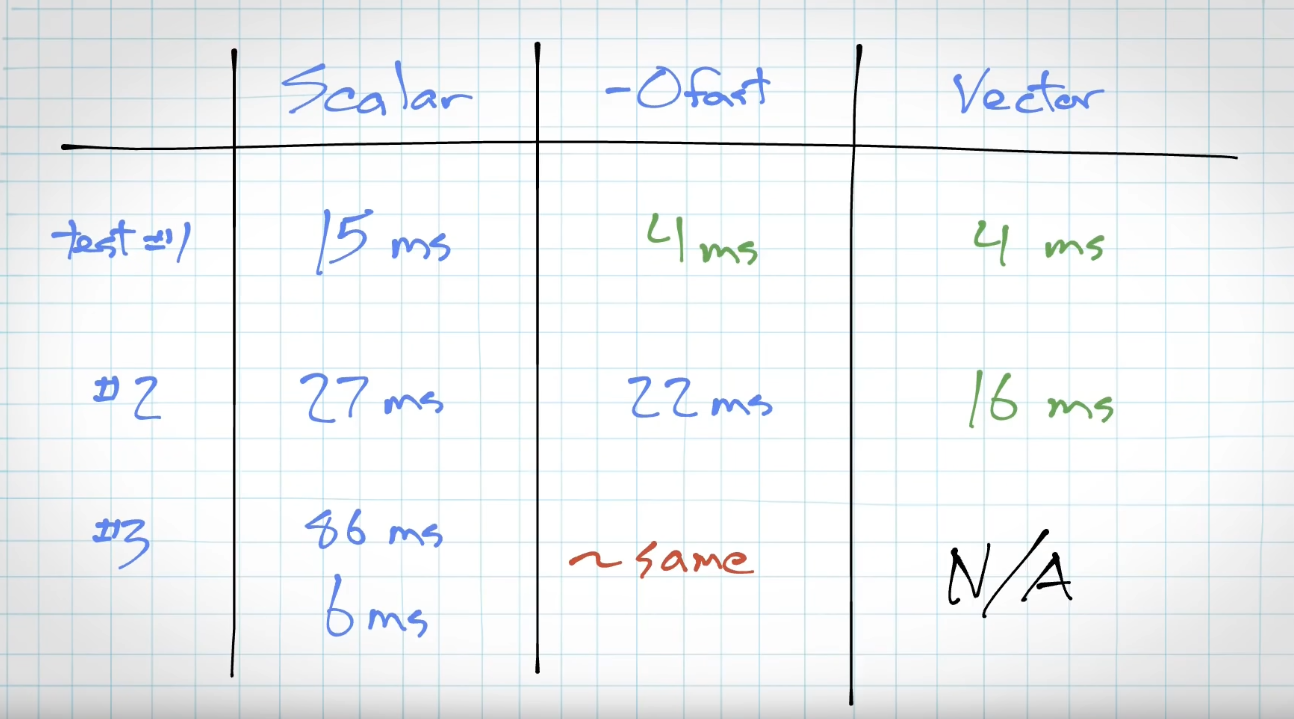 Scalar -Ofast Vector
test #1 15 ms 4 ms 4 ms
#2 27 ms 22 ms 16 ms
#3 86 ms ~same N/A
6 ms